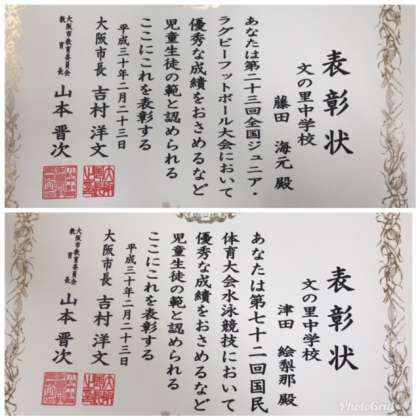 表彰状
文の里中学校
藤田 海元 殿
あなたは第二十三回全国ジュニア・
ラグビーフットボール大会において
優秀な成績をおさめるなど
児童生徒の範と認められる
ここにこれを表彰する
平成三十年二月二十三日
大阪市長 吉村洋文
大阪市教育委員会
教育長 山本晋次
表彰状
文の里中学校
津田 絵梨那 殿
あなたは第七十二回国民
体育大会水泳競技において
優秀な成績をおさめるなど
児童生徒の範と認められる
ここにこれを表彰する
平成三十年二月二十三日
大阪市長 吉村洋文
大阪市教育委員会
教育長 山本晋次
PhotoGrid